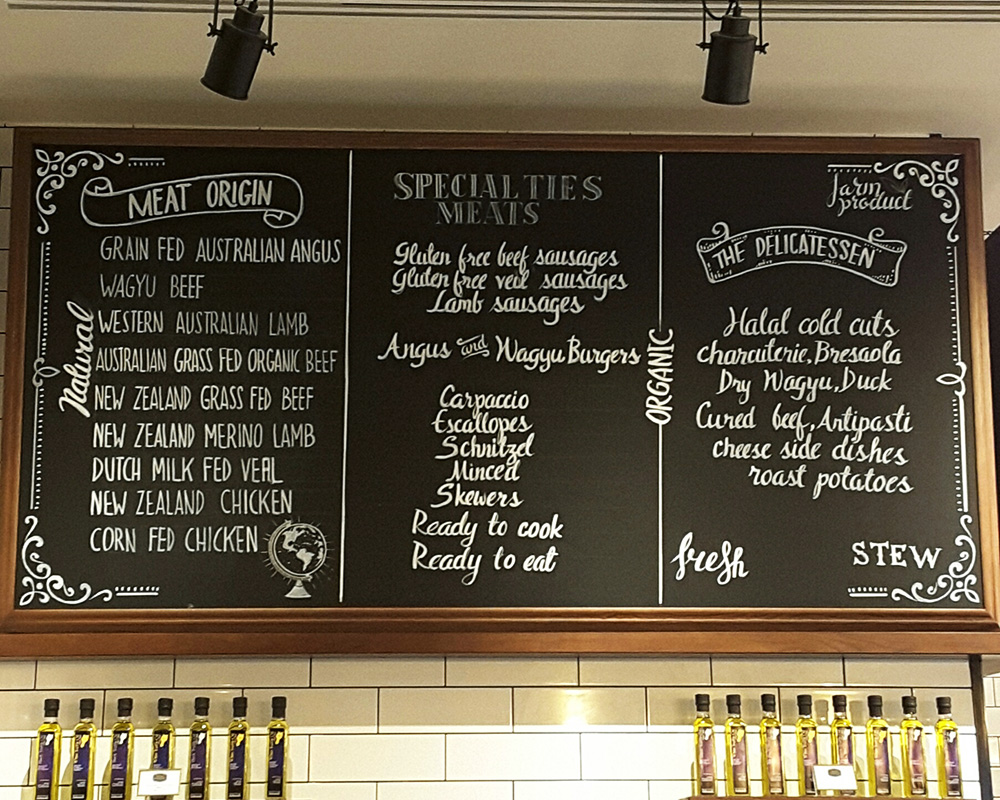 MEAT ORIGIN
GRAIN FED AUSTRALIAN ANGUS
WAGYU BEEF
WESTERN AUSTRALIAN LAMB
AUSTRALIAN GRASS FED ORGANIC BEEF
NEW ZEALAND GRASS FED BEEF
NEW ZEALAND MERINO LAMB
DUTCH MILK FED VEAL
NEW ZEALAND CHICKEN
CORN FED CHICKEN
Natural
SPECIALTIES
MEATS
Gluten free beef sausages
Gluten free veal sausages
Lamb sausages
Angus and Wagyu Burgers
Carpaccio
Escallopes
Schnitzel
Minced
Skewers
Ready to cook
Ready to eat
ORGANIC
farm
product
THE DELICATESSEN
Halal cold cuts
charcuterie, Bresaola
Dry Wagyu, Duck
Cured beef, Antipasti
cheese side dishes
roast potatoes
fresh
STEW